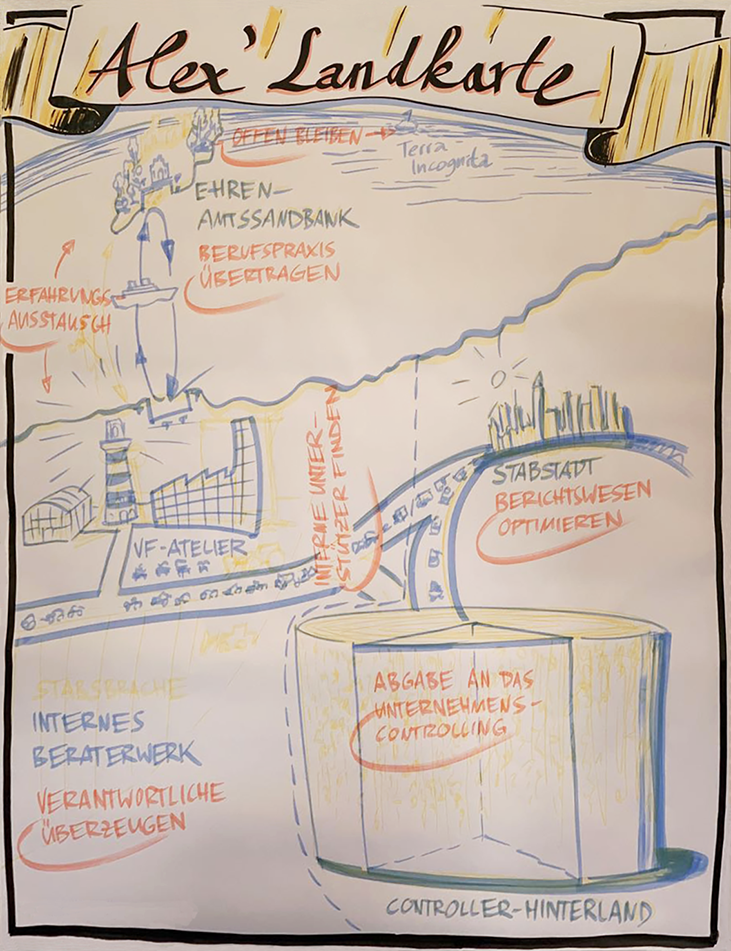 Alex' Landkarte
OFFEN BLEIBEN
Terra
Incognita
EHREN-
AMTSSANDBANK
BERUFSPRAXIS
ÜBERTRAGEN
ERFAHRUNGS
AUSSTAUSCH
INTERNE UNTER-
STÜTZER FINDEN
STABSTADT
BERICHTSWESEN
OPTIMIEREN
VF-ATELIER
STABSBRACHE
INTERNES
BERATERWERK
VERANTWORTLICHE
ÜBERZEUGEN
ABGABE AN DAS
UNTERNEHMENS-
CONTROLLING
CONTROLLER-HINTERLAND